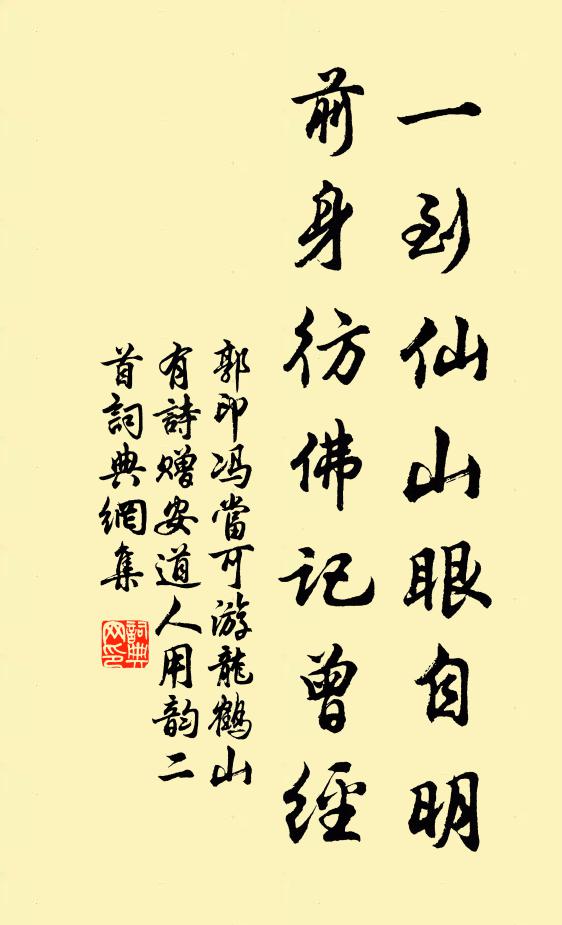 一到仙山眼自明
前身彷佛記曾經
郭印冯當可游龍鶴山
有詩赠安道人用韵二
首詞典網集
詞典網印